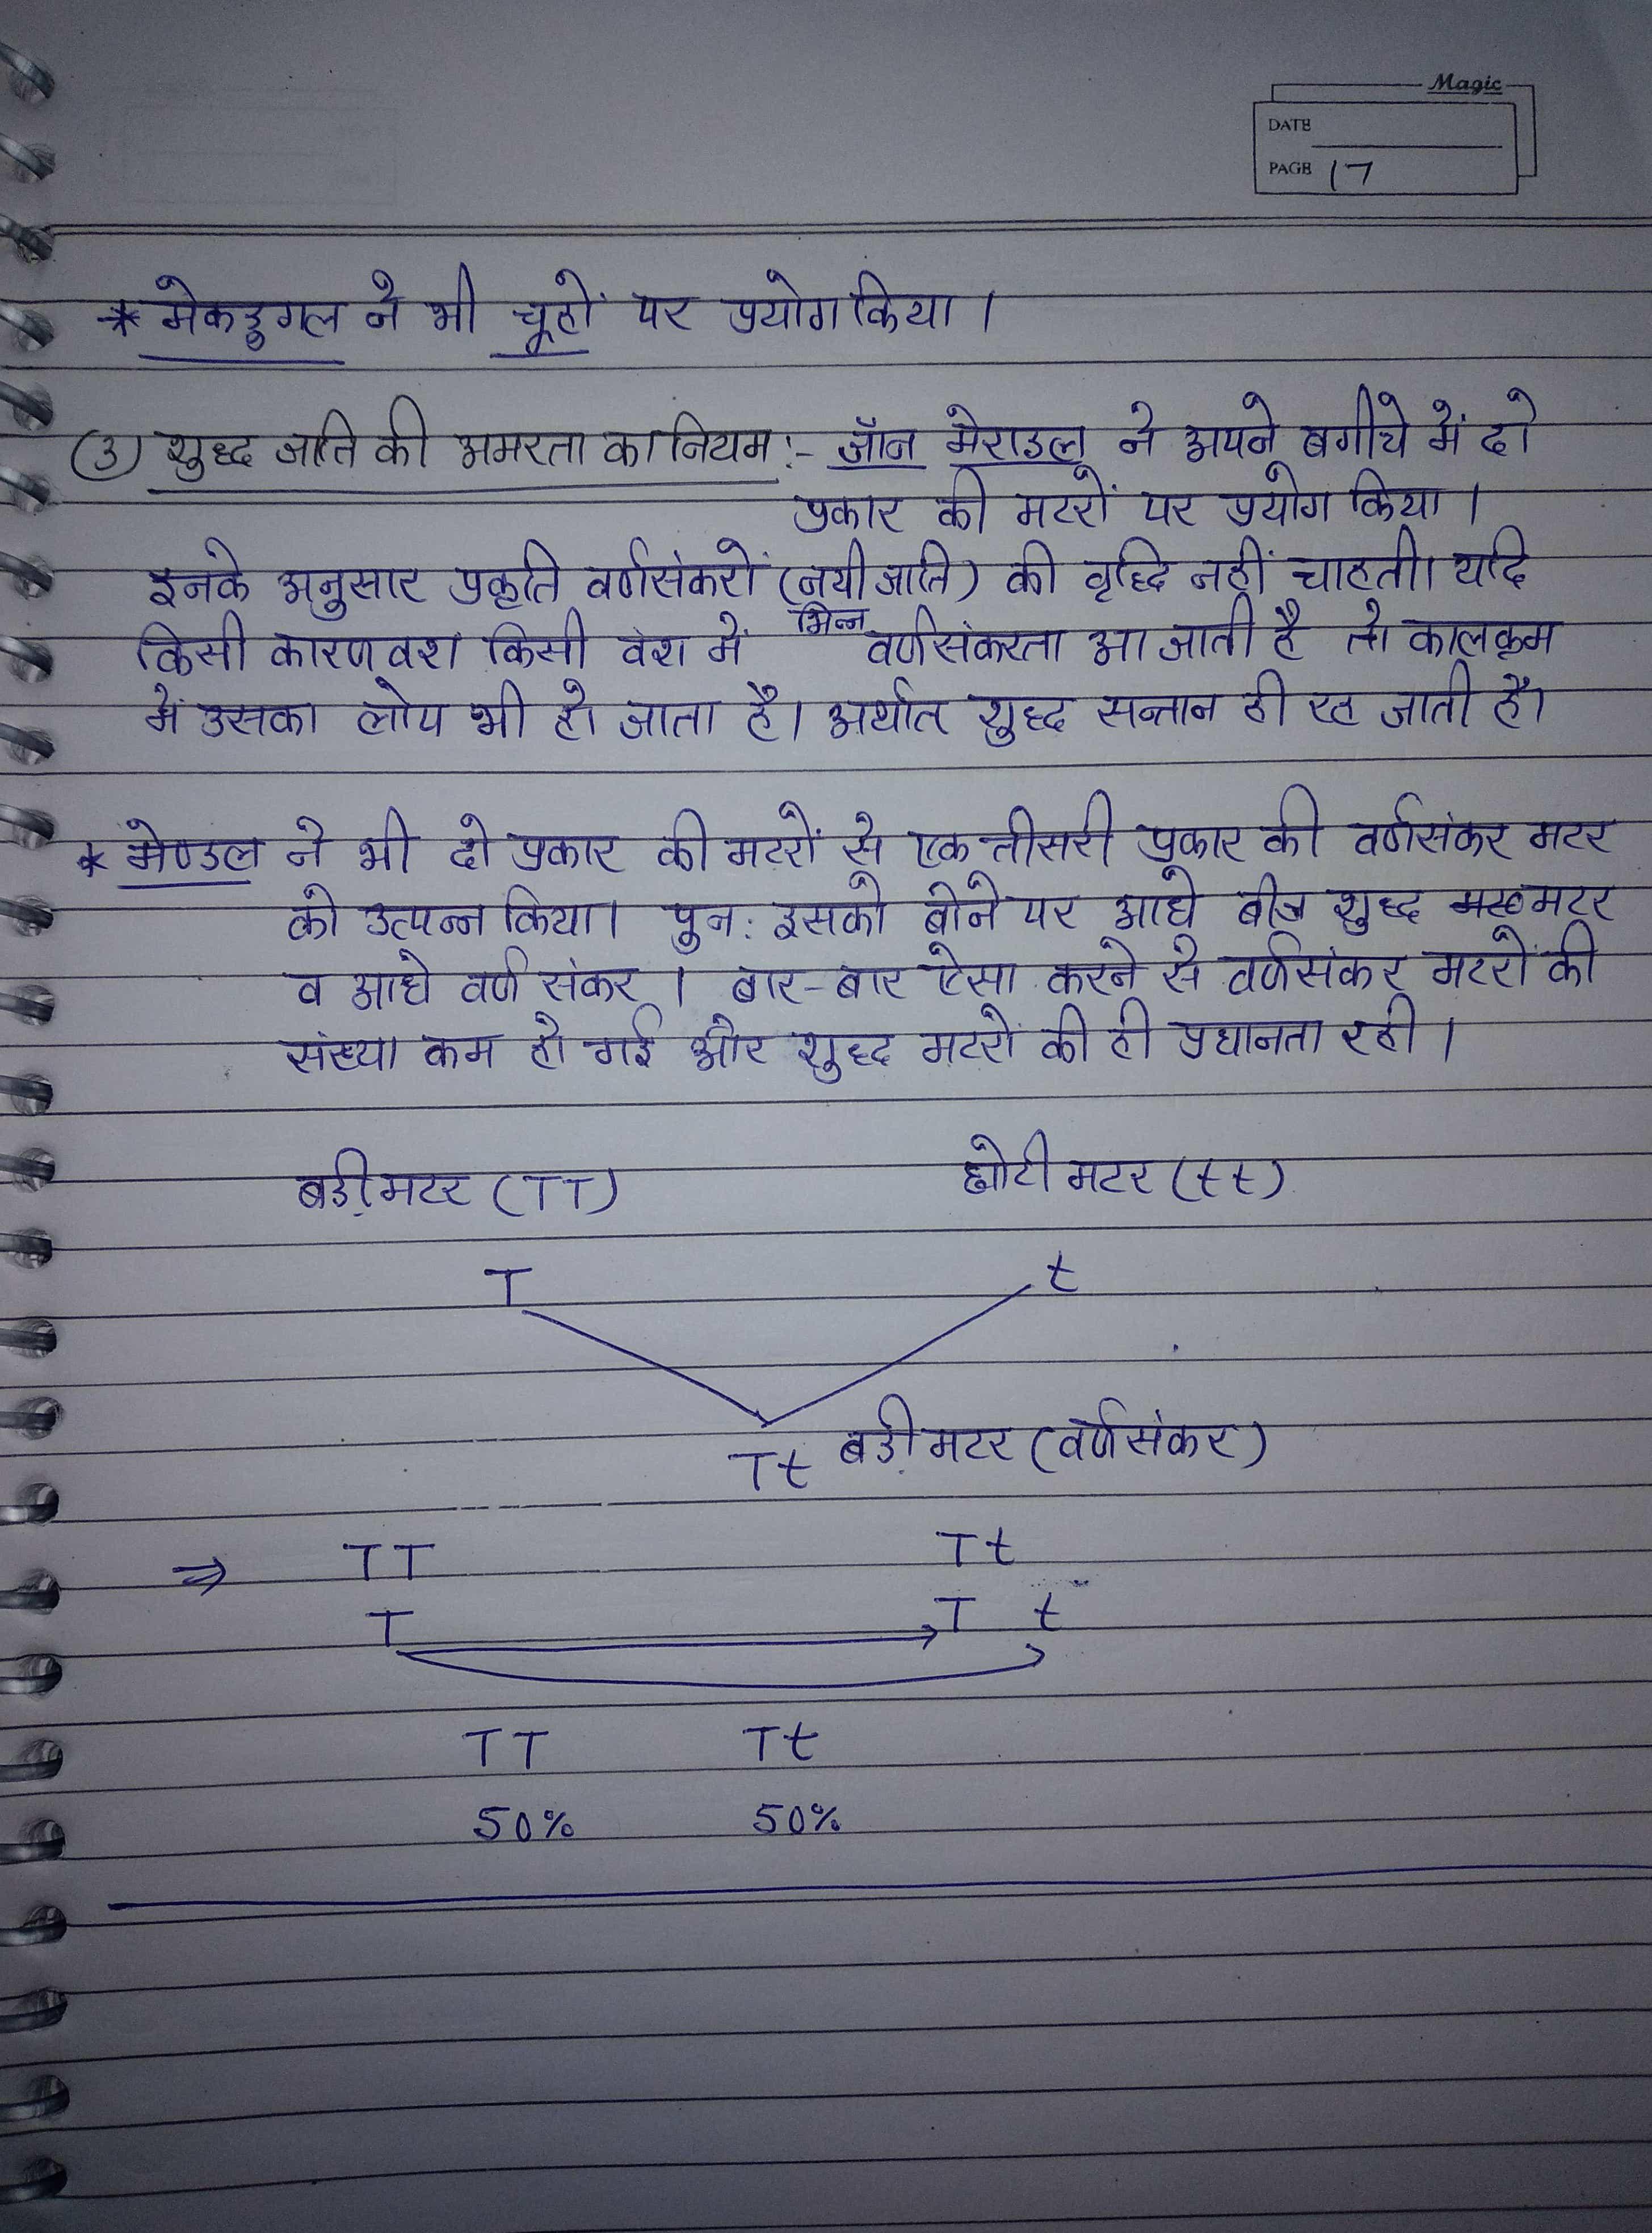 Magic
DATE
PAGE 17
* मेकडुगल ने भी चूहों पर प्रयोग किया।
(3) शुद्ध जाति की अमरता का नियम :- जॉन मेराडल ने अपने बगीचे में दो
प्रकार की मटरों पर प्रयोग किया।
इनके अनुसार प्रकृति वर्णसंकरों (नयी जाति) की वृद्धि नहीं चाहती। यदि
किसी कारणवश किसी वंश में भिन्न वर्णसंकरता आ जाती है तो कालक्रम
में उसका लोप भी हो जाता है। अर्थात शुद्ध सन्तान ही रह जाती है।
* मेण्डल ने भी दो प्रकार की मटरों से एक तीसरी प्रकार की वर्णसंकर मटर
को उत्पन्न किया। पुन: इसको बोने पर आधे बीज शुद्ध मटर
व आधे वर्ण संकर। बार-बार ऐसा करने से वर्णसंकर मटरों की
संख्या कम हो गई और शुद्ध मटरों की ही प्रधानता रही।
बड़ी मटर (TT) छोटी मटर (tt)
T t
Tt बड़ी मटर (वर्णसंकर)
⇒ TT Tt
T T t
TT Tt
50% 50%